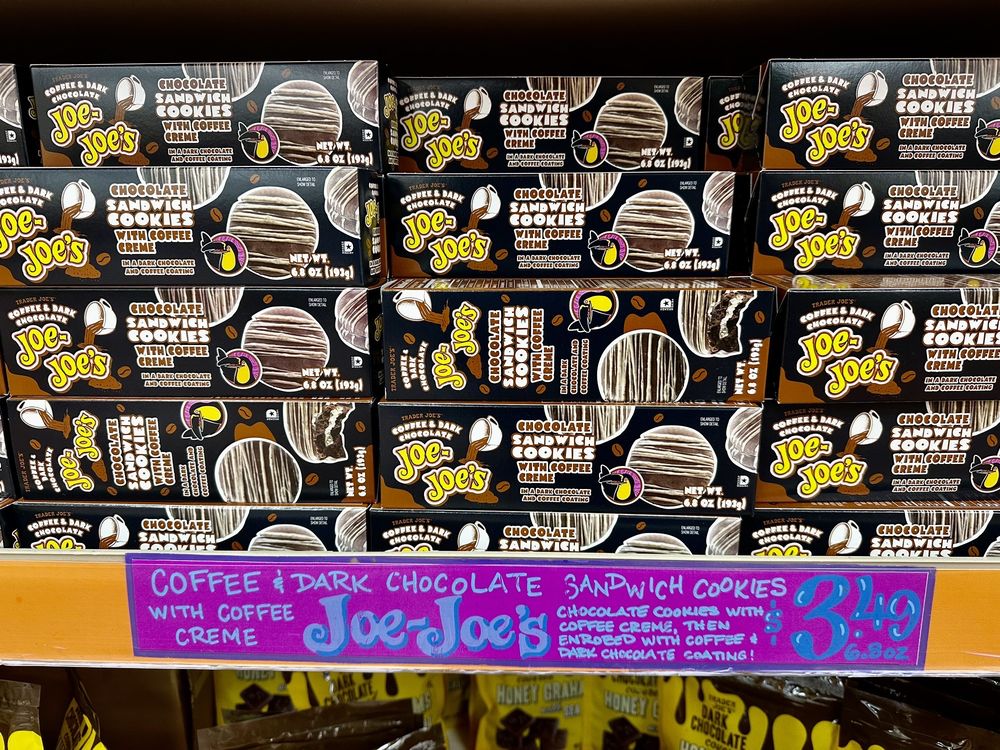 TRADER JOE'S
COFFEE & DARK
CHOCOLATE
JOE-
JOE'S
CHOCOLATE
SANDWICH
COOKIES
WITH COFFEE
CREME
IN A DARK CHOCOLATE
AND COFFEE COATING
ENLARGED TO
SHOW DETAIL
NET WT.
6.8 OZ (193g)
COFFEE & DARK CHOCOLATE SANDWICH COOKIES
WITH COFFEE
CREME
JOE-JOE'S
CHOCOLATE COOKIES WITH
COFFEE CREME, THEN
ENROBED WITH COFFEE &
DARK CHOCOLATE COATING!
$3.49
6.8 OZ
HONEY GRAHA
HONEY G
TRADER JOE'S
DARK
CHOCOLATE